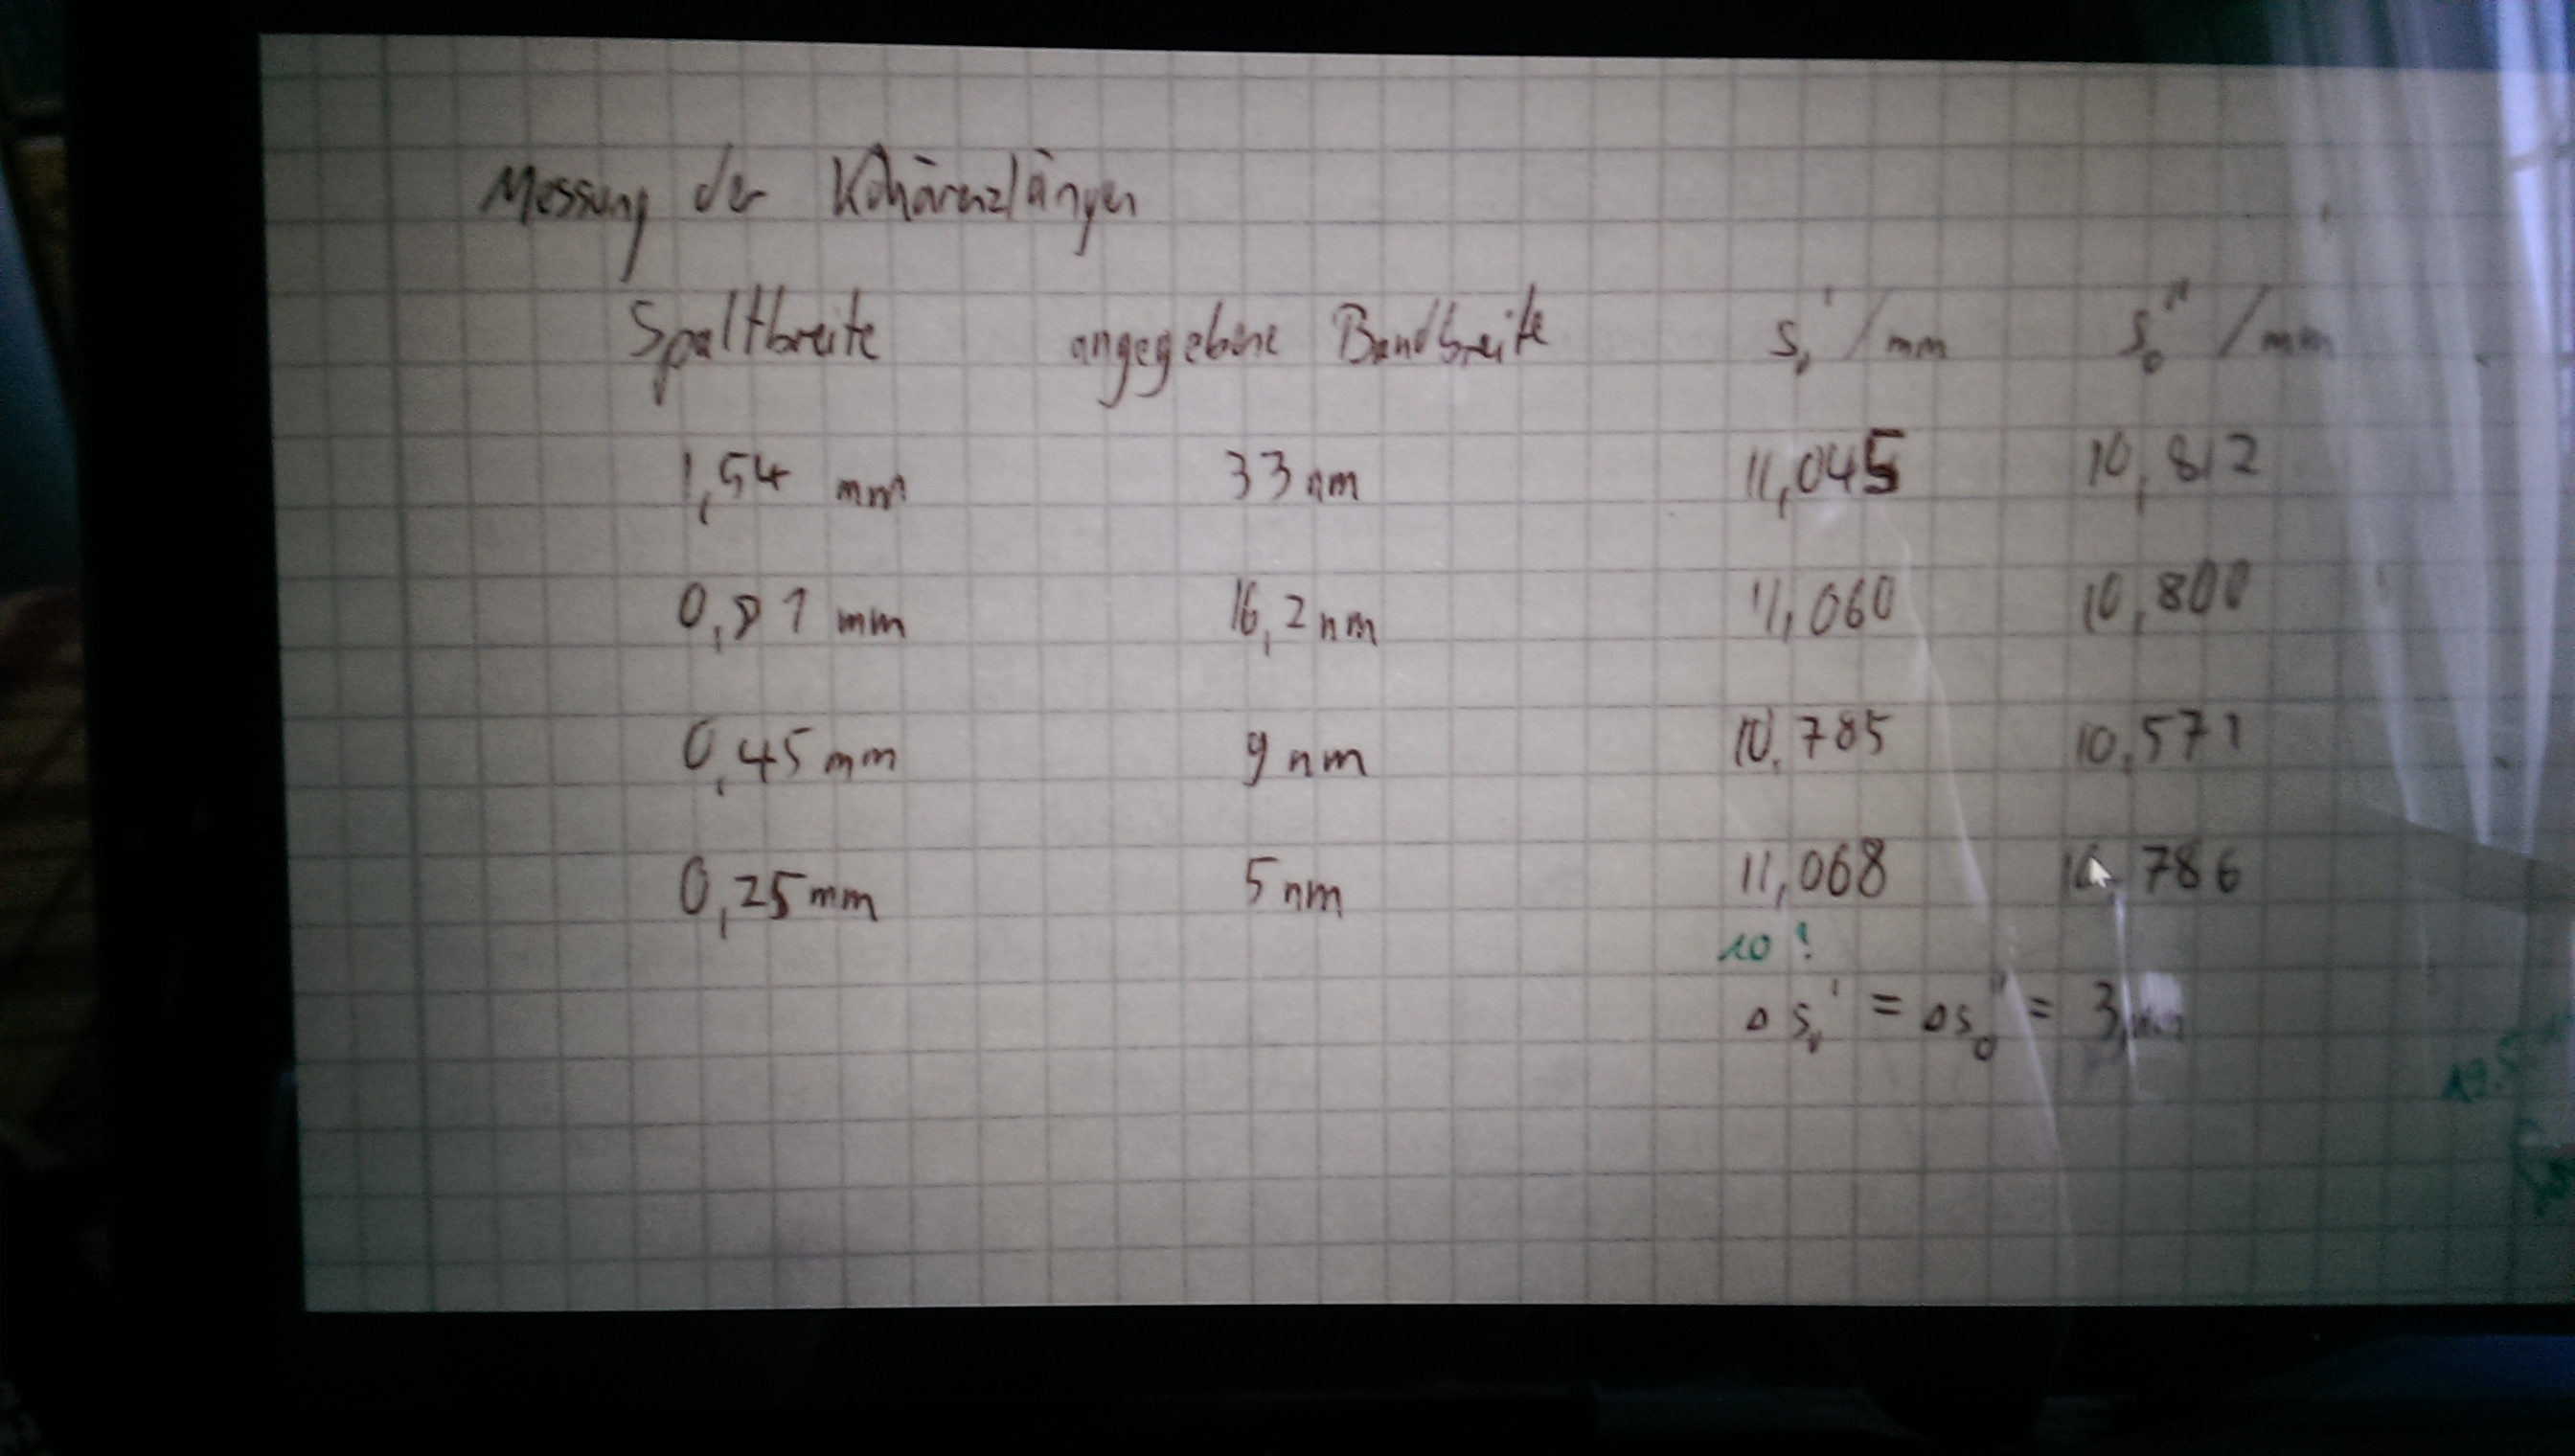 Messung der Kohärenzlängen
Spaltbreite angegebene Bandbreite s₀' /mm s₀'' /mm
1,54 mm 33 nm 11,045 10,812
0,81 mm 16,2 nm 11,060 10,800
0,45 mm 9 nm 10,785 10,571
0,25 mm 5 nm 11,068 10,786
10!
Δs₀' = Δs₀'' = 3